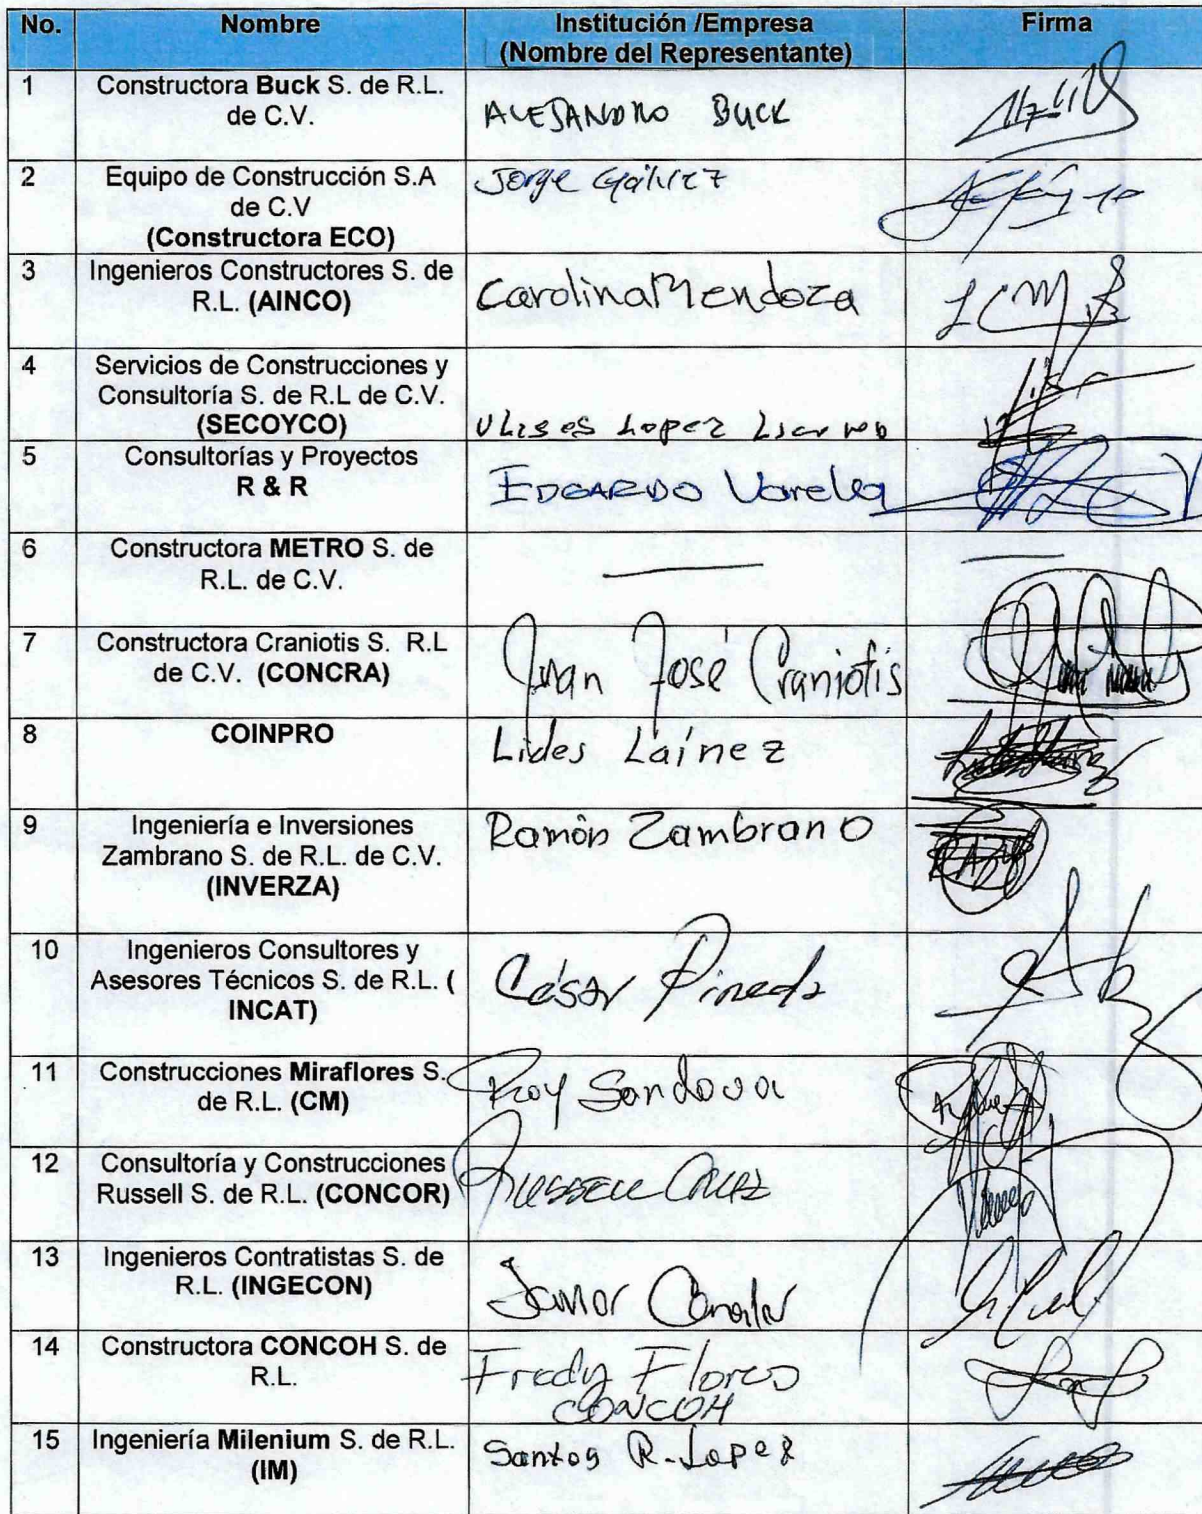 No. Nombre Institución /Empresa Firma
(Nombre del Representante)
1 Constructora Buck S. de R.L.
de C.V.
ALEJANDRO BUCK
2 Equipo de Construcción S.A
de C.V
(Constructora ECO)
Jorge Gálvez
3 Ingenieros Constructores S. de
R.L. (AINCO)
Carolina Mendoza
LCM
4 Servicios de Construcciones y
Consultoría S. de R.L de C.V.
(SECOYCO)
Ulises Lopez
5 Consultorías y Proyectos
R & R
EDGARDO Varela
6 Constructora METRO S. de
R.L. de C.V.
7 Constructora Craniotis S. R.L
de C.V. (CONCRA)
Juan José Craniotis
8 COINPRO
Lides Laínez
9 Ingeniería e Inversiones
Zambrano S. de R.L. de C.V.
(INVERZA)
Ramón Zambrano
10 Ingenieros Consultores y
Asesores Técnicos S. de R.L. (
INCAT)
César Pineda
11 Construcciones Miraflores S.
de R.L. (CM)
Roy Sandoval
12 Consultoría y Construcciones
Russell S. de R.L. (CONCOR)
RUSSELL CRUZ
13 Ingenieros Contratistas S. de
R.L. (INGECON)
14 Constructora CONCOH S. de
R.L.
Fredy Flores
CONCOH
15 Ingeniería Milenium S. de R.L.
(IM)
Santos R. Lopez